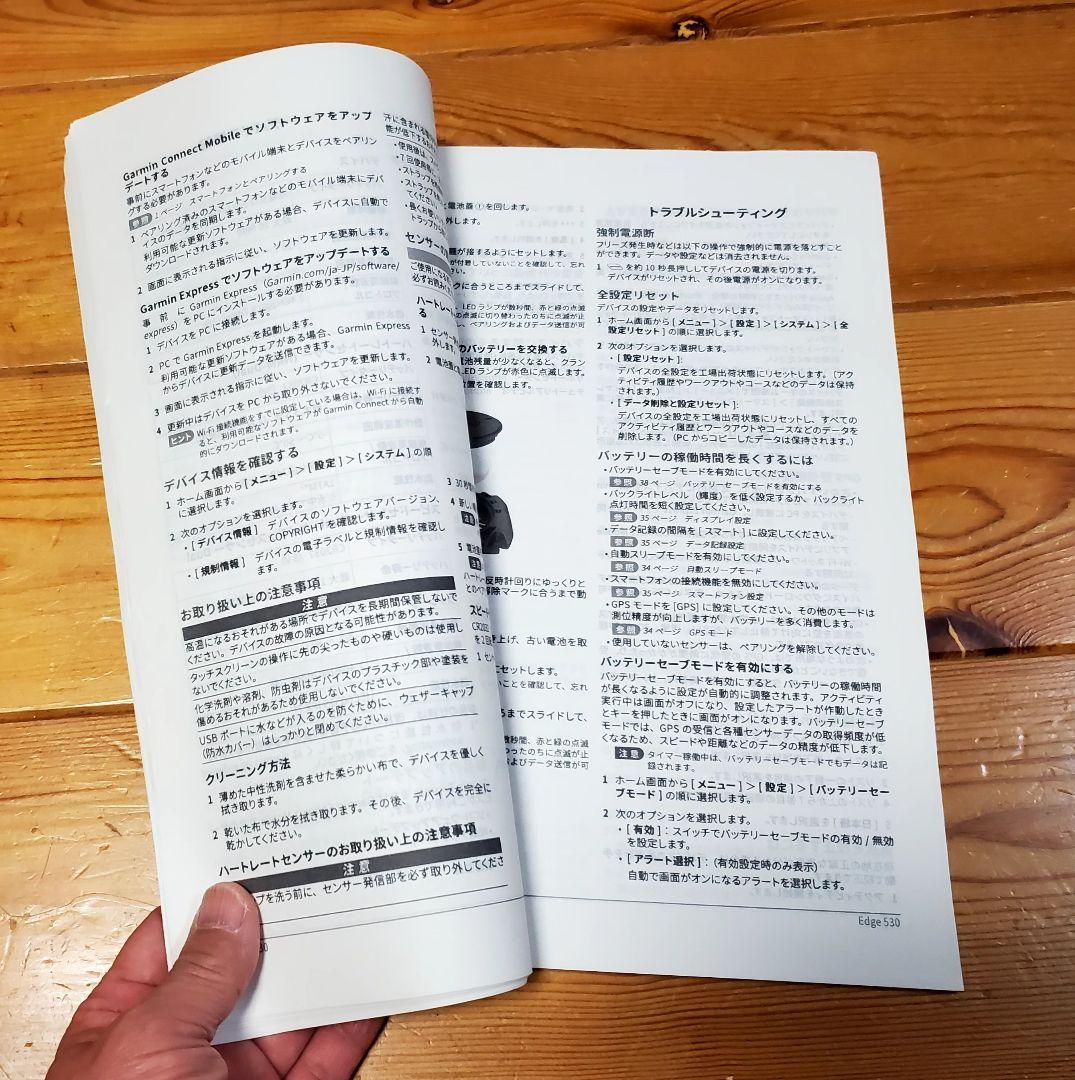 Garmin Connect Mobile でソフトウェアをアップ
デートする
事前にスマートフォンなどのモバイル端末とデバイスをペアリン
グする必要があります。
参照 1 ページ スマートフォンとペアリングする
1 ペアリング済みのスマートフォンなどのモバイル端末にデバ
イスのデータを同期します。
利用可能な更新ソフトウェアがある場合、デバイスに自動で
ダウンロードされます。
2 画面に表示される指示に従い、ソフトウェアを更新します。
Garmin Express でソフトウェアをアップデートする
事前に Garmin Express（Garmin.com/ja-JP/software/
express）を PC にインストールする必要があります。
1 デバイスを PC に接続します。
2 PC で Garmin Express を起動します。
利用可能な更新ソフトがある場合、Garmin Express
からデバイスに更新データを送信できます。
3 画面に表示される指示に従い、ソフトウェアを更新します。
4 更新中はデバイスを PC から取り外さないでください。
ヒント Wi-Fi 接続機能をすでに設定している場合は、Wi-Fi に接続す
ると、利用可能なソフトウェアが Garmin Connect から自動
的にダウンロードされます。
デバイス情報を確認する
1 ホーム画面から [ メニュー ] > [ 設定 ] > [ システム ] の順
に選択します。
2 次のオプションを選択します。
・[ デバイス情報 ] デバイスのソフトウェアバージョン、
COPYRIGHT を確認します。
・[ 規制情報 ] デバイスの電子ラベルと規制情報を確認し
ます。
お取り扱い上の注意事項
注 意
高温になるおそれがある場所でデバイスを長期間保管しないで
ください。デバイスの故障の原因となる可能性があります。
タッチスクリーンの操作に先の尖ったものや硬いものは使用し
ないでください。
化学洗剤や溶剤、防虫剤はデバイスのプラスチック部や塗装を
傷めるおそれがあるため使用しないでください。
USB ポートに水などが入るのを防ぐために、ウェザーキャップ
（防水カバー）はしっかりと閉めてください。
クリーニング方法
1 薄めた中性洗剤を含ませた柔らかい布で、デバイスを優しく
拭き取ります。
2 乾いた布で水分を拭き取ります。その後、デバイスを完全に
乾かしてください。
ハートレートセンサーのお取り扱い上の注意事項
注 意
プを洗う前に、センサー発信部を必ず取り外してくださ
汗に含まれる
能が低下する
・使用後は、
・7 回使用
・ストラップ
・ストラップ
てください
・長くお使い
トラップ
センサーの
ご使用になる
必ずお読み
ハートレート
る
1 センサー
外します。
2 電池蓋
電池蓋①を回します。
外します。
が接するようにセットします。
が付着していないことを確認して、忘れ
さい。
クに合うところまでスライドして、
LED ランプが数秒間、赤と緑の点滅
の点滅に切り替わったのちに点滅が止
し、ペアリングおよびデータ送信が可
のバッテリーを交換する
池残量が少なくなると、クラン
LED ランプが赤色に点滅します。
位置を確認します。
3 30 秒
4 新しい
注意
5 電池蓋
注意
反時計回りにゆっくりと
除マークに合うまで動
スピード
CR2032
を 2 回
1 セン
上げ、古い電池を取
にセットします。
いことを確認して、忘れ
ろまでスライドして、
数秒間、赤と緑の点滅
わったのちに点滅が止
よびデータ送信が可
トラブルシューティング
強制電源断
フリーズ発生時などは以下の操作で強制的に電源を落とすこと
ができます。データや設定などは消去されません。
1 を約 10 秒長押ししてデバイスの電源を切ります。
デバイスがリセットされ、その後電源がオンになります。
全設定リセット
デバイスの設定やデータをリセットします。
1 ホーム画面から [ メニュー ] > [ 設定 ] > [ システム ] > [ 全
設定リセット ] の順に選択します。
2 次のオプションを選択します。
・[ 設定リセット ]:
デバイスの全設定を工場出荷状態にリセットします。（アク
ティビティ履歴やワークアウトやコースなどのデータは保持
されます。）
・[ データ削除と設定リセット ]:
デバイスの全設定を工場出荷状態にリセットし、すべての
アクティビティ履歴とワークアウトやコースなどのデータを
削除します。（PC からコピーしたデータは保持されます。）
バッテリーの稼働時間を長くするには
・バッテリーセーブモードを有効にしてください。
参照 38 ページ バッテリーセーブモードを有効にする
・バックライトレベル（輝度）を低く設定するか、バックライト
点灯時間を短く設定してください。
参照 35 ページ ディスプレイ設定
・データ記録の間隔を [ スマート ] に設定してください。
参照 35 ページ データ記録設定
・自動スリープモードを有効にしてください。
参照 34 ページ 自動スリープモード
・スマートフォンの接続機能を無効にしてください。
参照 35 ページ スマートフォン設定
・GPS モードを [GPS] に設定してください。その他のモードは
測位精度が向上しますが、バッテリーを多く消費します。
参照 34 ページ GPS モード
・使用していないセンサーは、ペアリングを解除してください。
バッテリーセーブモードを有効にする
バッテリーセーブモードを有効にすると、バッテリーの稼働時間
が長くなるように設定が自動的に調整されます。アクティビティ
実行中は画面がオフになり、設定したアラートが作動したとき
とキーを押したときに画面がオンになります。バッテリーセーブ
モードでは、GPS の受信と各種センサーデータの取得頻度が低
くなるため、スピードや距離などのデータの精度が低下します。
注意 タイマー稼働中は、バッテリーセーブモードでもデータは記
録されます。
1 ホーム画面から [ メニュー ] > [ 設定 ] > [ バッテリーセー
ブモード ] の順に選択します。
2 次のオプションを選択します。
・[ 有効 ]：スイッチでバッテリーセーブモードの有効 / 無効
を設定します。
・[ アラート選択 ]：（有効設定時のみ表示）
自動で画面がオンになるアラートを選択します。
Edge 530